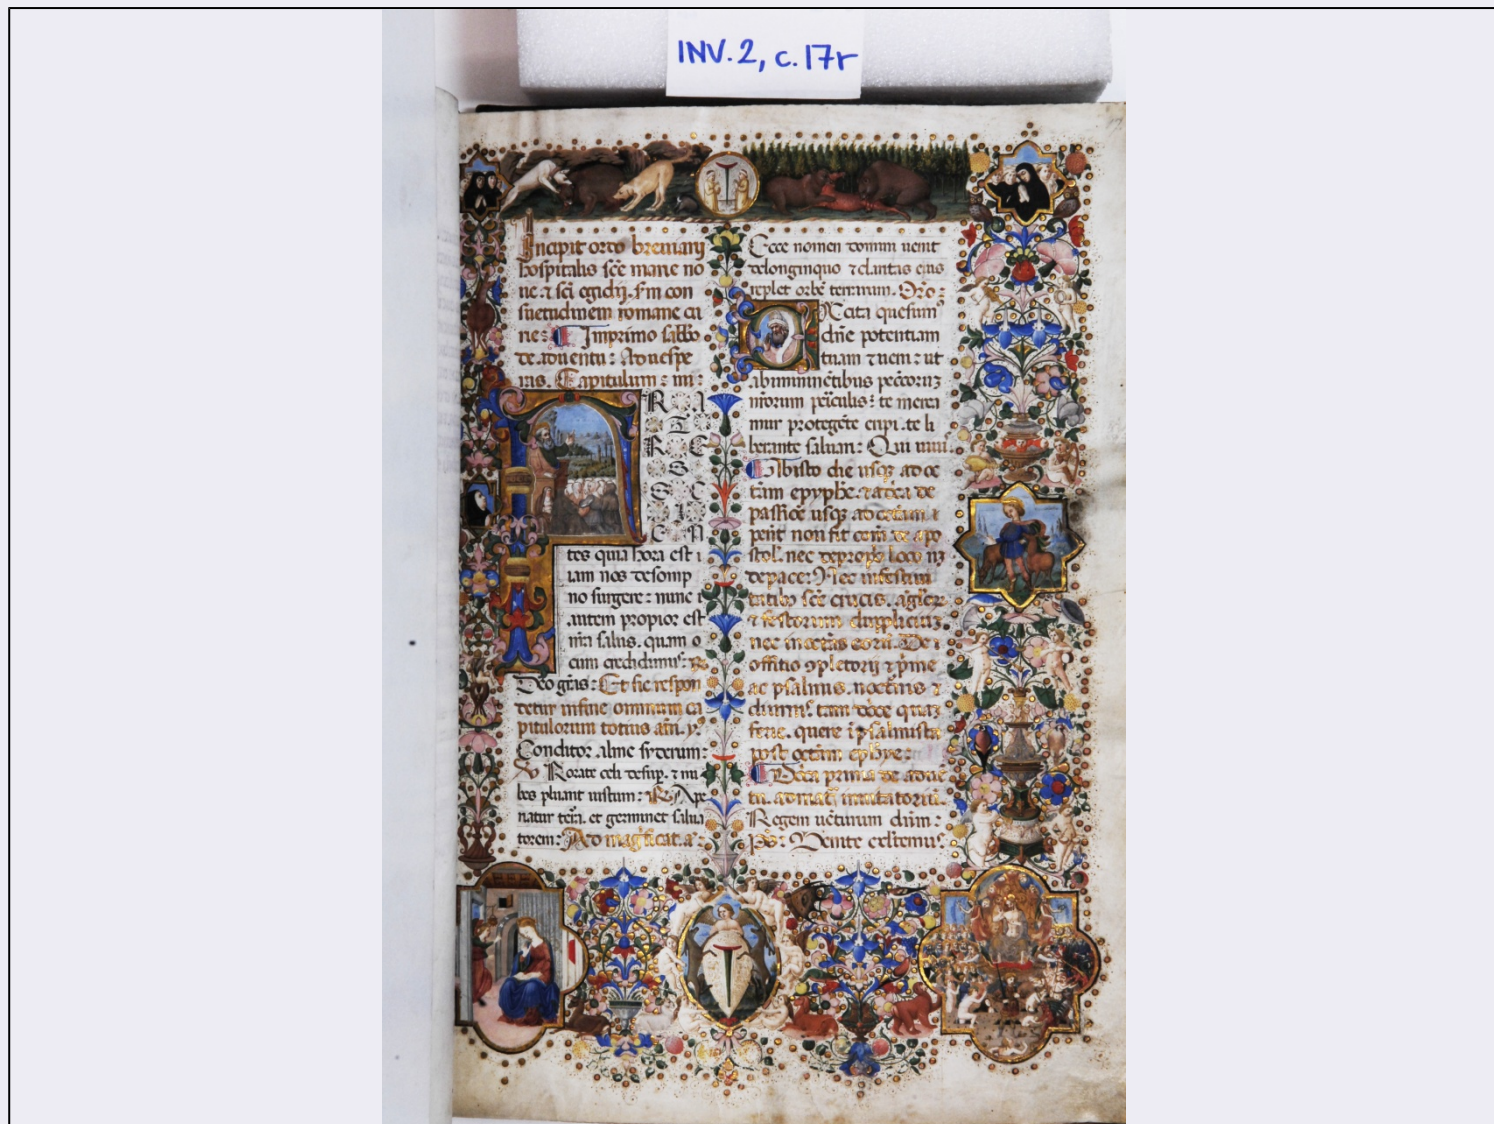 INV.2, c.17r
Incipit ordo breviarij
hospitalis scē marie no
ne. ⁊ sci egidij. fm con
suetudinem romane cu
rie: Imprimo sabbo
de adventu: Ad vespe
ras. Capitulum:
F
R A
T
R E
S
S C
I
E N
tes quia hora est i
iam nos de somp
no surgere: nunc
autem propior est
nr̄a salus. quam
cum credidimus:
Deo grās: Et sic respon
detur in fine omnium ca
pitulorum totius
Conditor alme syderum:
Rorate celi desup. ⁊ nu
bes pluant iustum: Ape
riatur terra. et germinet salva
torem: Ad magnificat. a
Ecce nomen domini venit
de longinquo ⁊ claritas eius
replet orbē terrarum. Oro:
Excita quesum
dn̄e potentiam
tuam ⁊ veni: ut
ab imminētibus peccorum
nr̄orum periculis: te merea
mur protegēte eripi. te li
berante salvari: Qui vivis
Ab isto die usq ad oc
tam epyphie. ⁊ a dca de
passiōe usq ad octam
pent non fit com de apo
stol. nec de proprio loco
de pace: Nec in festivi
tatibus scē crucis. angelor
⁊ festorum duplicium
nec in octavis eorum. De
offitio completorij ⁊ pime
ac psalmis. nocturnis ⁊
diurnis. tam dnice quam
ferie. quere i psalmista
post octam epiphie:
Dnica prima de adve
tu. ad mat. invitatoriū.
Regem venturum dnm:
ps: Venite exultemus